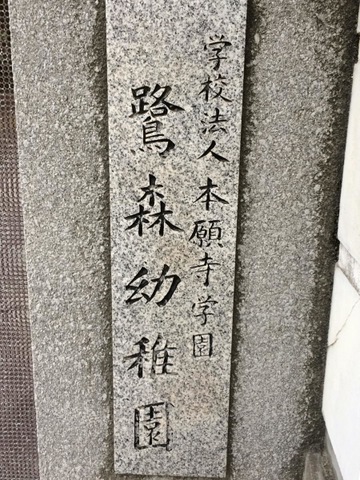 学校法人本願寺学園
鷺森幼稚園